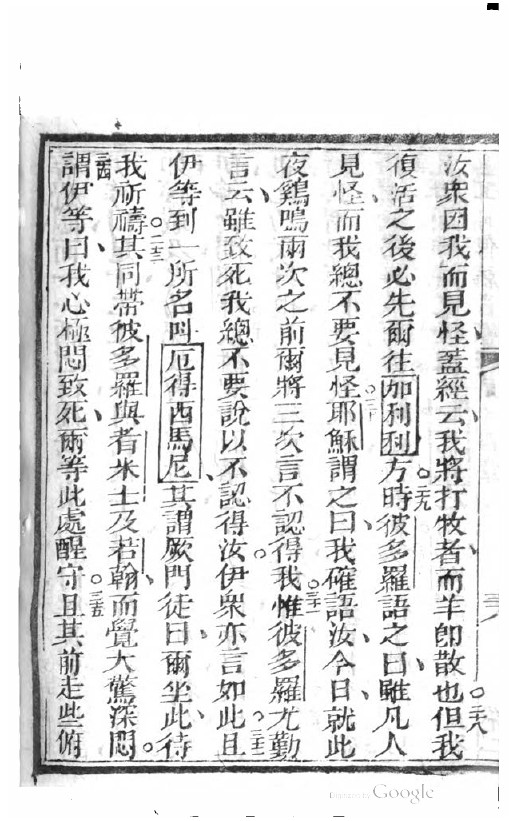 汝衆因我而見怪蓋經云我將打牧者而羊卽散也但我
二八
復活之後必先爾往加利利方時彼多羅語之曰雖凡人
二九
見怪而我總不要見怪耶穌謂之曰我確語汝今日就此
三十
夜鷄鳴兩次之前爾將三次言不認得我惟彼多羅尤勤
三一
言云雖致死我總不要說以不認得汝伊衆亦言如此且
三二
伊等到一所名呌厄得西馬尼其謂厥門徒曰爾坐此待
我祈禱其同帶彼多羅與者米士及若翰而覺大驚深悶
三三
謂伊等曰我心極悶致死爾等此處醒守且其前走些俯
三四
三五
Digitized by Google